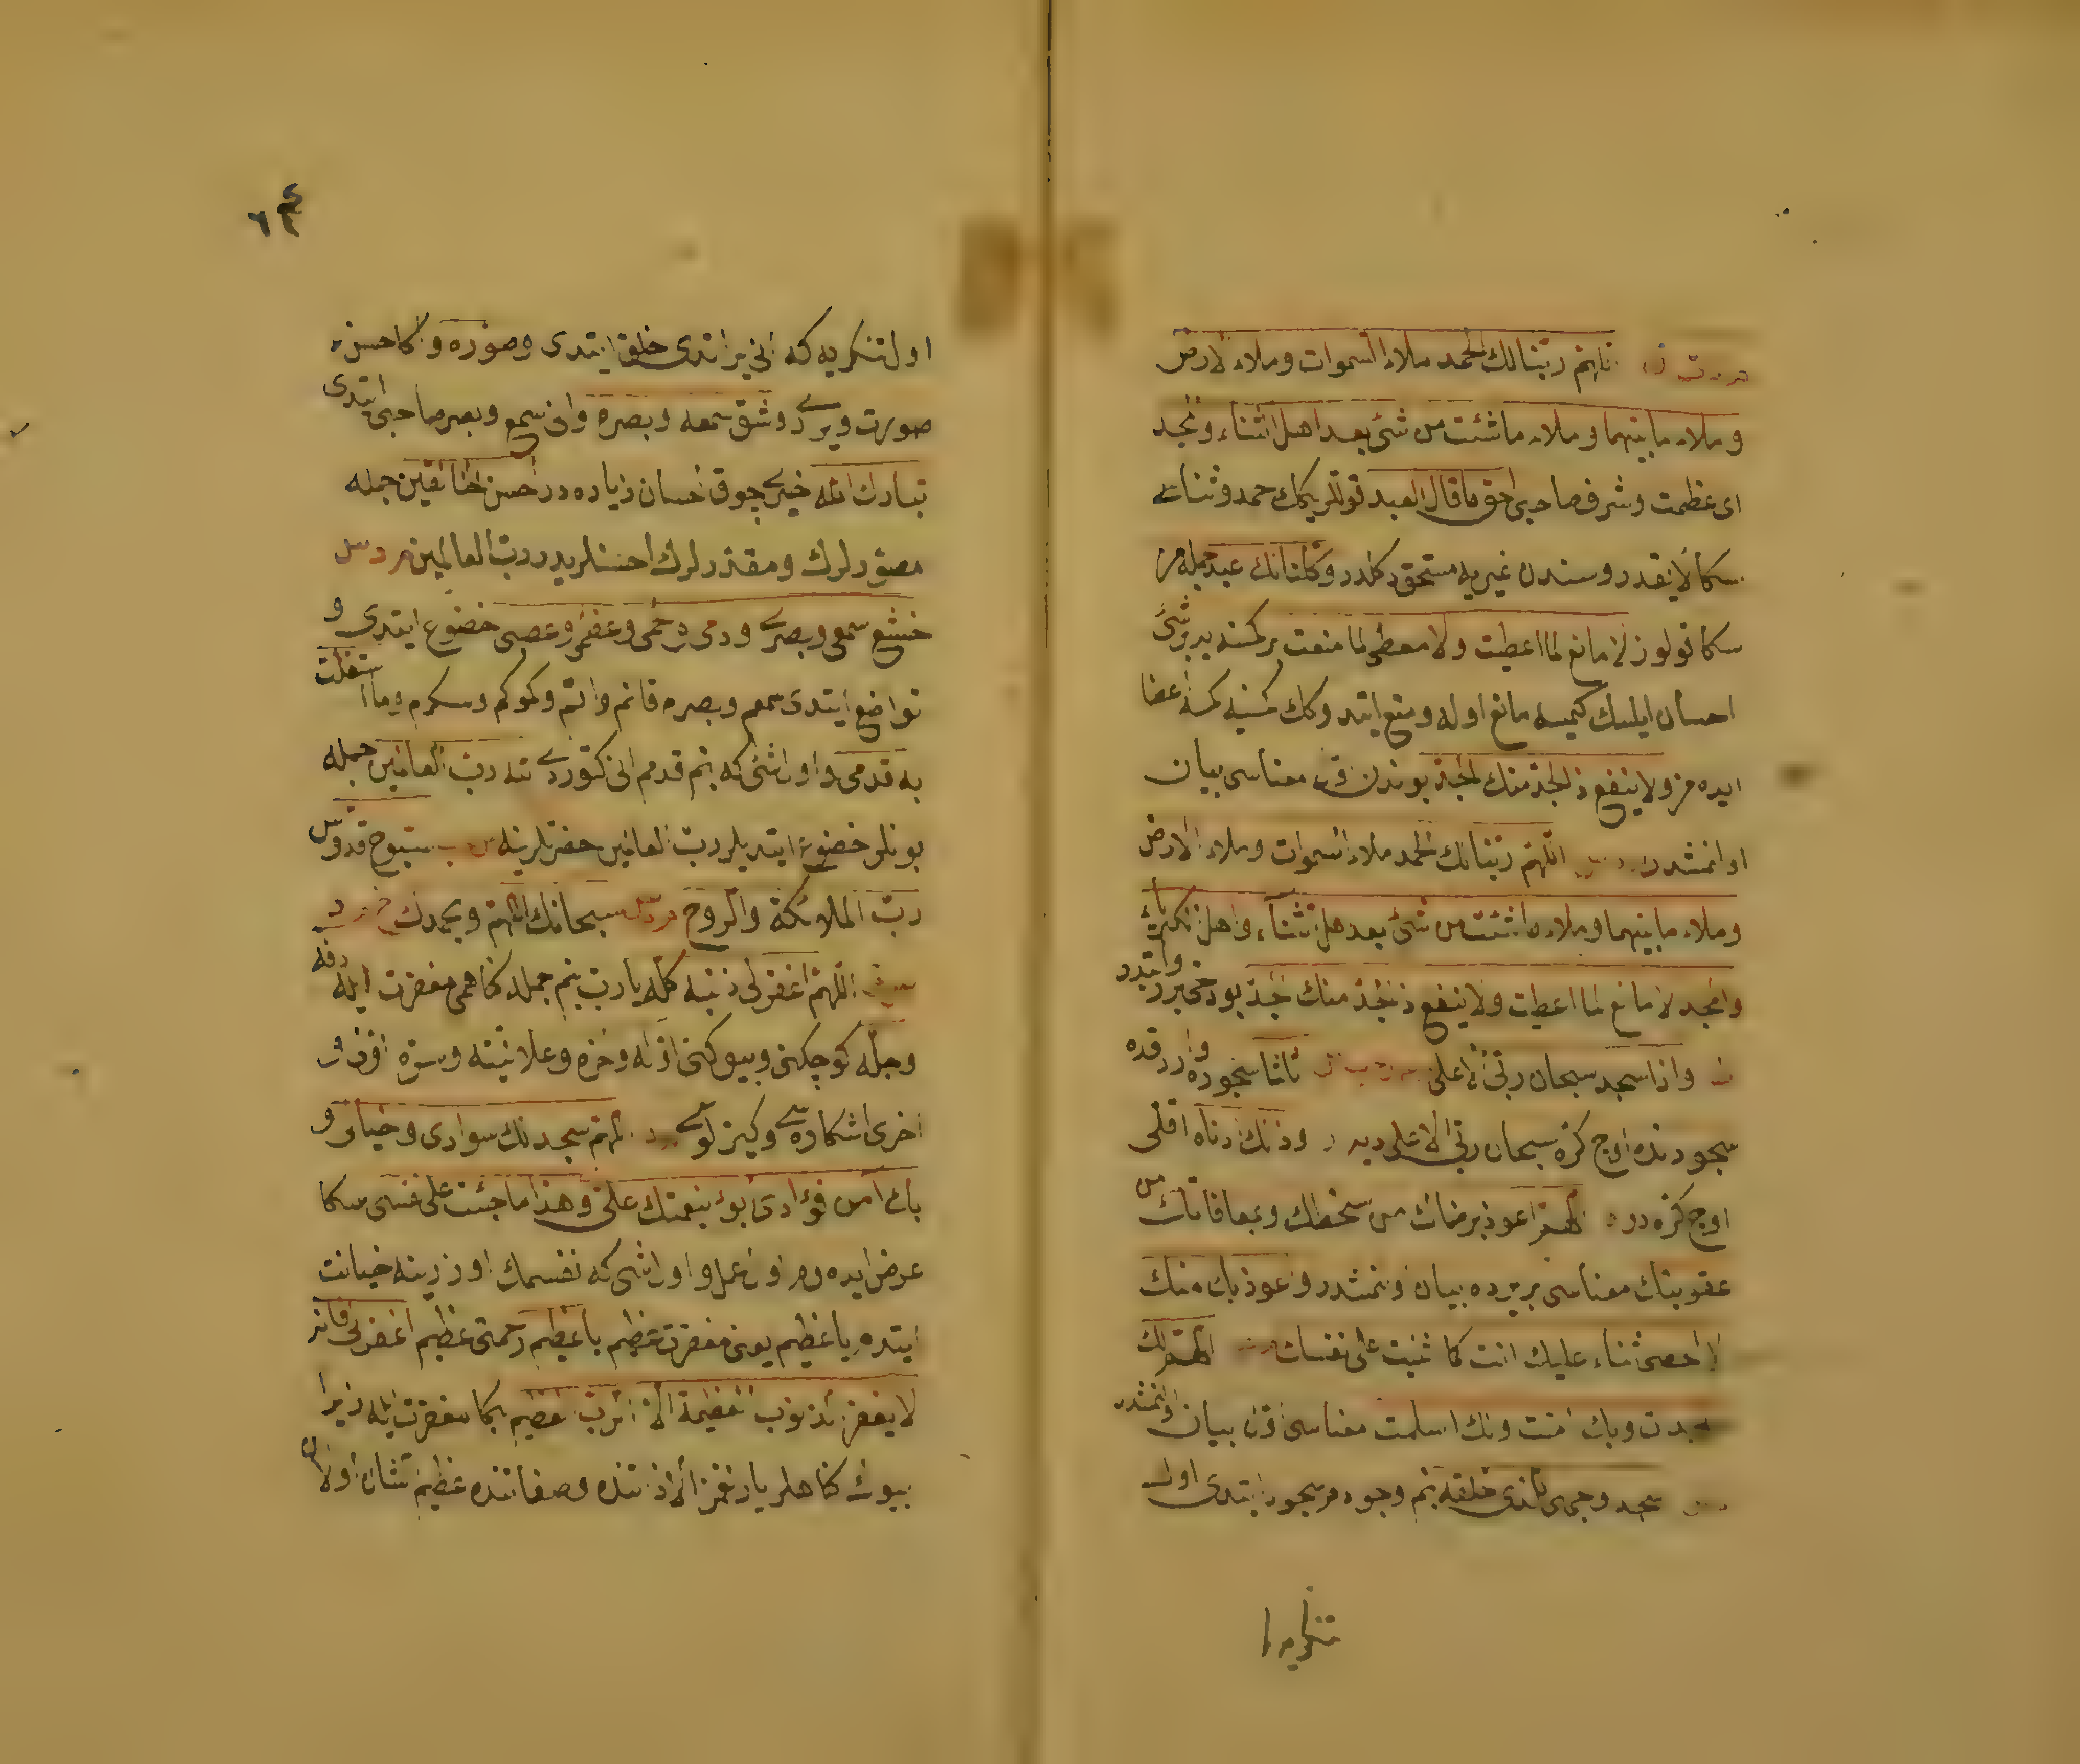 اللهم ربنا لك الحمد ملاء السموات وملاء الارض
وملاء ما بينهما وملاء ما شئت من شئ بعد اهل الثناء والمجد
اى عظمت وشرف صاحبى احق ما قال العبد قوللريكك حمد وثناسى
سكا لايقدر وسندن غيريه مستحق دكلدر وكلنا لك عبد جمله مز
سكا قولوز لا مانع لما اعطيت ولا معطى لما منعت بر كمسنه يه بر شئ
احسان ايلسك كيمسه مانع اوله ومنع ايتدوكك كمسنه يه كمسنه اعطا
ايده مز ولا ينفع ذا الجد منك الجد بوندن معناسى بيان
اولنمشدر اللهم ربنا لك الحمد ملاء السموات وملاء الارض
وملاء ما بينهما وملاء ما شئت من شئ بعد اهل الثناء واهل الكبرياء
والمجد لا مانع لما اعطيت ولا ينفع ذا الجد منك الجد بو دخى بر
واذا سجد سبحان ربى الاعلى ثلثا سجوده وارد قده
سجودنده اوج كره سبحان ربى الاعلى ديه وذلك ادناه اقلى
اوج كره در اللهم اعوذ برضاك من سخطك وبمعافاتك من
عقوبتك معناسى بر يرده بيان اولنمشدر واعوذ بك منك
لا احصى ثناء عليك انت كما اثنيت على نفسك اللهم لك
سجدت وبك امنت ولك اسلمت معناسى بيان اولنمشدر
سجد وجهى للذى خلقه بنم وجودم سجود ايتدى اول
تنكريه
٦٤
اول تنكريه كه انى يراتدى خلق ايتدى وصوره واكا احسن
صورت ويردى وشق سمعه وبصره وانى سمع وبصر صاحبى ايتدى
تبارك الله خيرى چوق احسان زياده در احسن الخالقين جمله
مصورلرك ومقدرلرك احسنلريدر رب العالمين
خشع سمعى وبصرى ودمى ولحمى وعظمى وعصبى خضوع ايتدى و
تواضع ايتدى سمعم وبصرم قانم واتم وكموكم وسكرم وما استقلت
به قدمى واول شئ كه بنم قدمم انى كتوردى لله رب العالمين جمله
بونلر خضوع ايتديلر رب العالمين حضرتلرينه سبوح قدوس
رب الملائكة والروح سبحانك اللهم وبحمدك
اللهم اغفر لى ذنبى كله يا رب بنم جمله كناهمى مغفرت ايله دقه
وجله كوچكنى وبيوكنى اوله واخره وعلانيته وسره اولن و
اخرى اشكاره سى وكيزلوسى اللهم سجد لك سوادى وخيالى و
بك امن فؤادى ابوء بنعمتك على وهذا ما جئت على نفسى سكا
عرض ايده رم اول عمل واول شئ كه نفسمك اوزرينه خيانت
ايتدم يا عظيم يعنى مغفرت عظيم يا عظيم رحمتى عظيم اغفر لى فانه
لا يغفر الذنوب العظيمة الا الرب العظيم بكا مغفرت ايله زيرا
بيوك كناهلر يارلغمز الا ذاتنده وصفاتنده عظيم الشان اولان